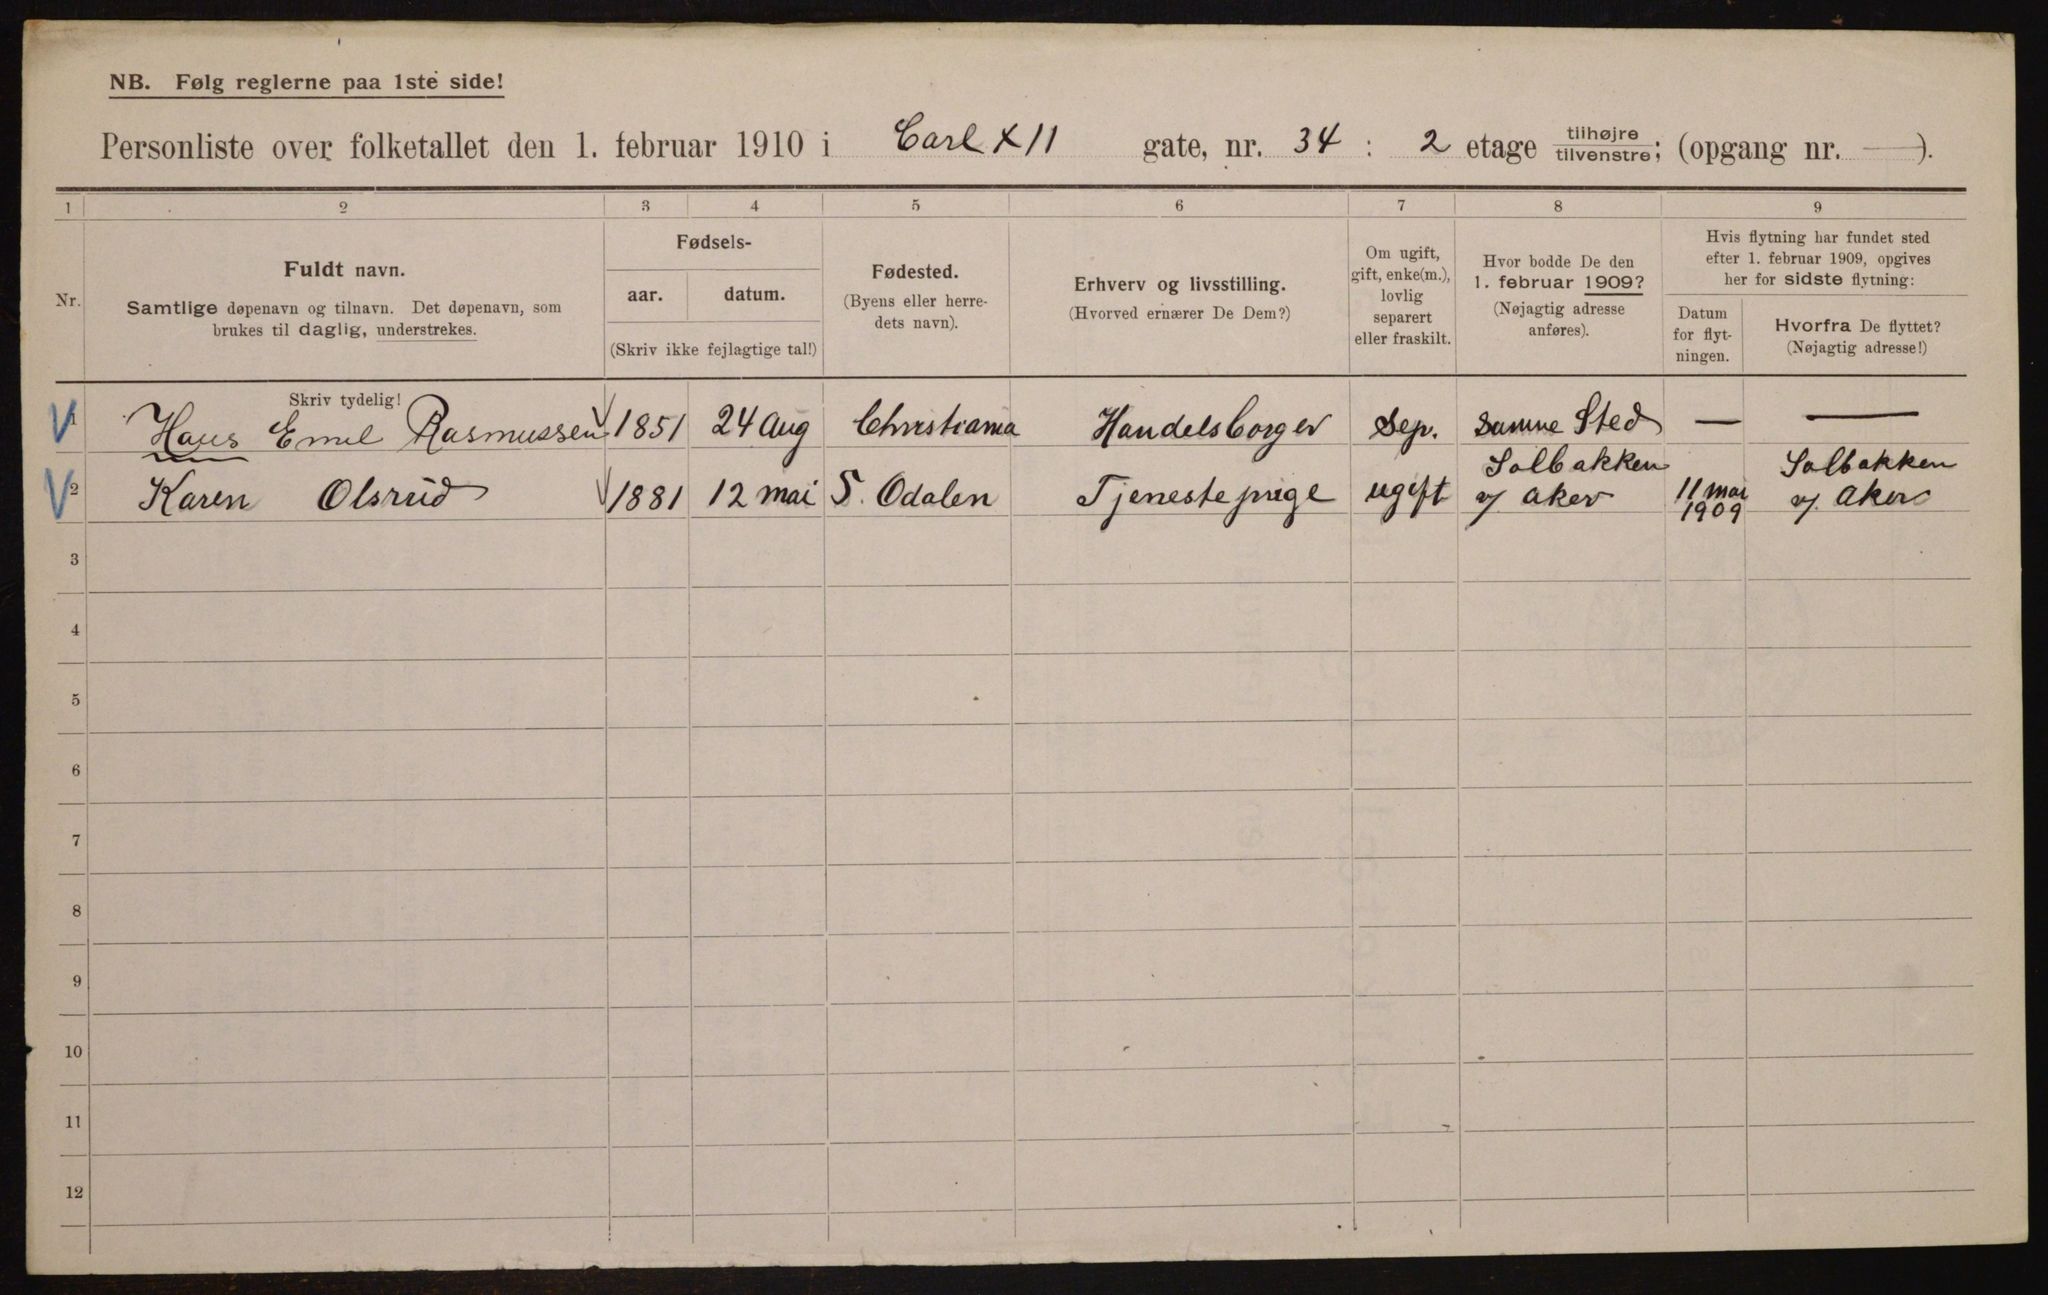 NB. Følg reglerne paa 1ste side!
Personliste over folketallet den 1. februar 1910 i Carl XII gate, nr. 34 : 2 etage tilhøjre/tilvenstre; (opgang nr. —).
1 2 3 4 5 6 7 8 9
Nr.
Fuldt navn.
Samtlige døpenavn og tilnavn. Det døpenavn, som
brukes til daglig, understrekes.
Fødsels-
aar. datum.
(Skriv ikke fejlagtige tal!)
Fødested.
(Byens eller herre-
dets navn).
Erhverv og livsstilling.
(Hvorved ernærer De Dem?)
Om ugift,
gift, enke(m.),
lovlig
separert
eller fraskilt.
Hvor bodde De den
1. februar 1909?
(Nøjagtig adresse
anføres).
Hvis flytning har fundet sted
efter 1. februar 1909, opgives
her for sidste flytning:
Datum
for flyt-
ningen.
Hvorfra De flyttet?
(Nøjagtig adresse!)
Skriv tydelig!
1 Hans Emil Rasmussen 1851 24 Aug Christiania Handelsborger Sep. Samme Sted — —
2 Karen Olsrud 1881 12 mai S. Odalen Tjenestepige ugift Solbakken v/ Aker 11 mai 1909 Solbakken v/. Aker
3
4
5
6
7
8
9
10
11
12